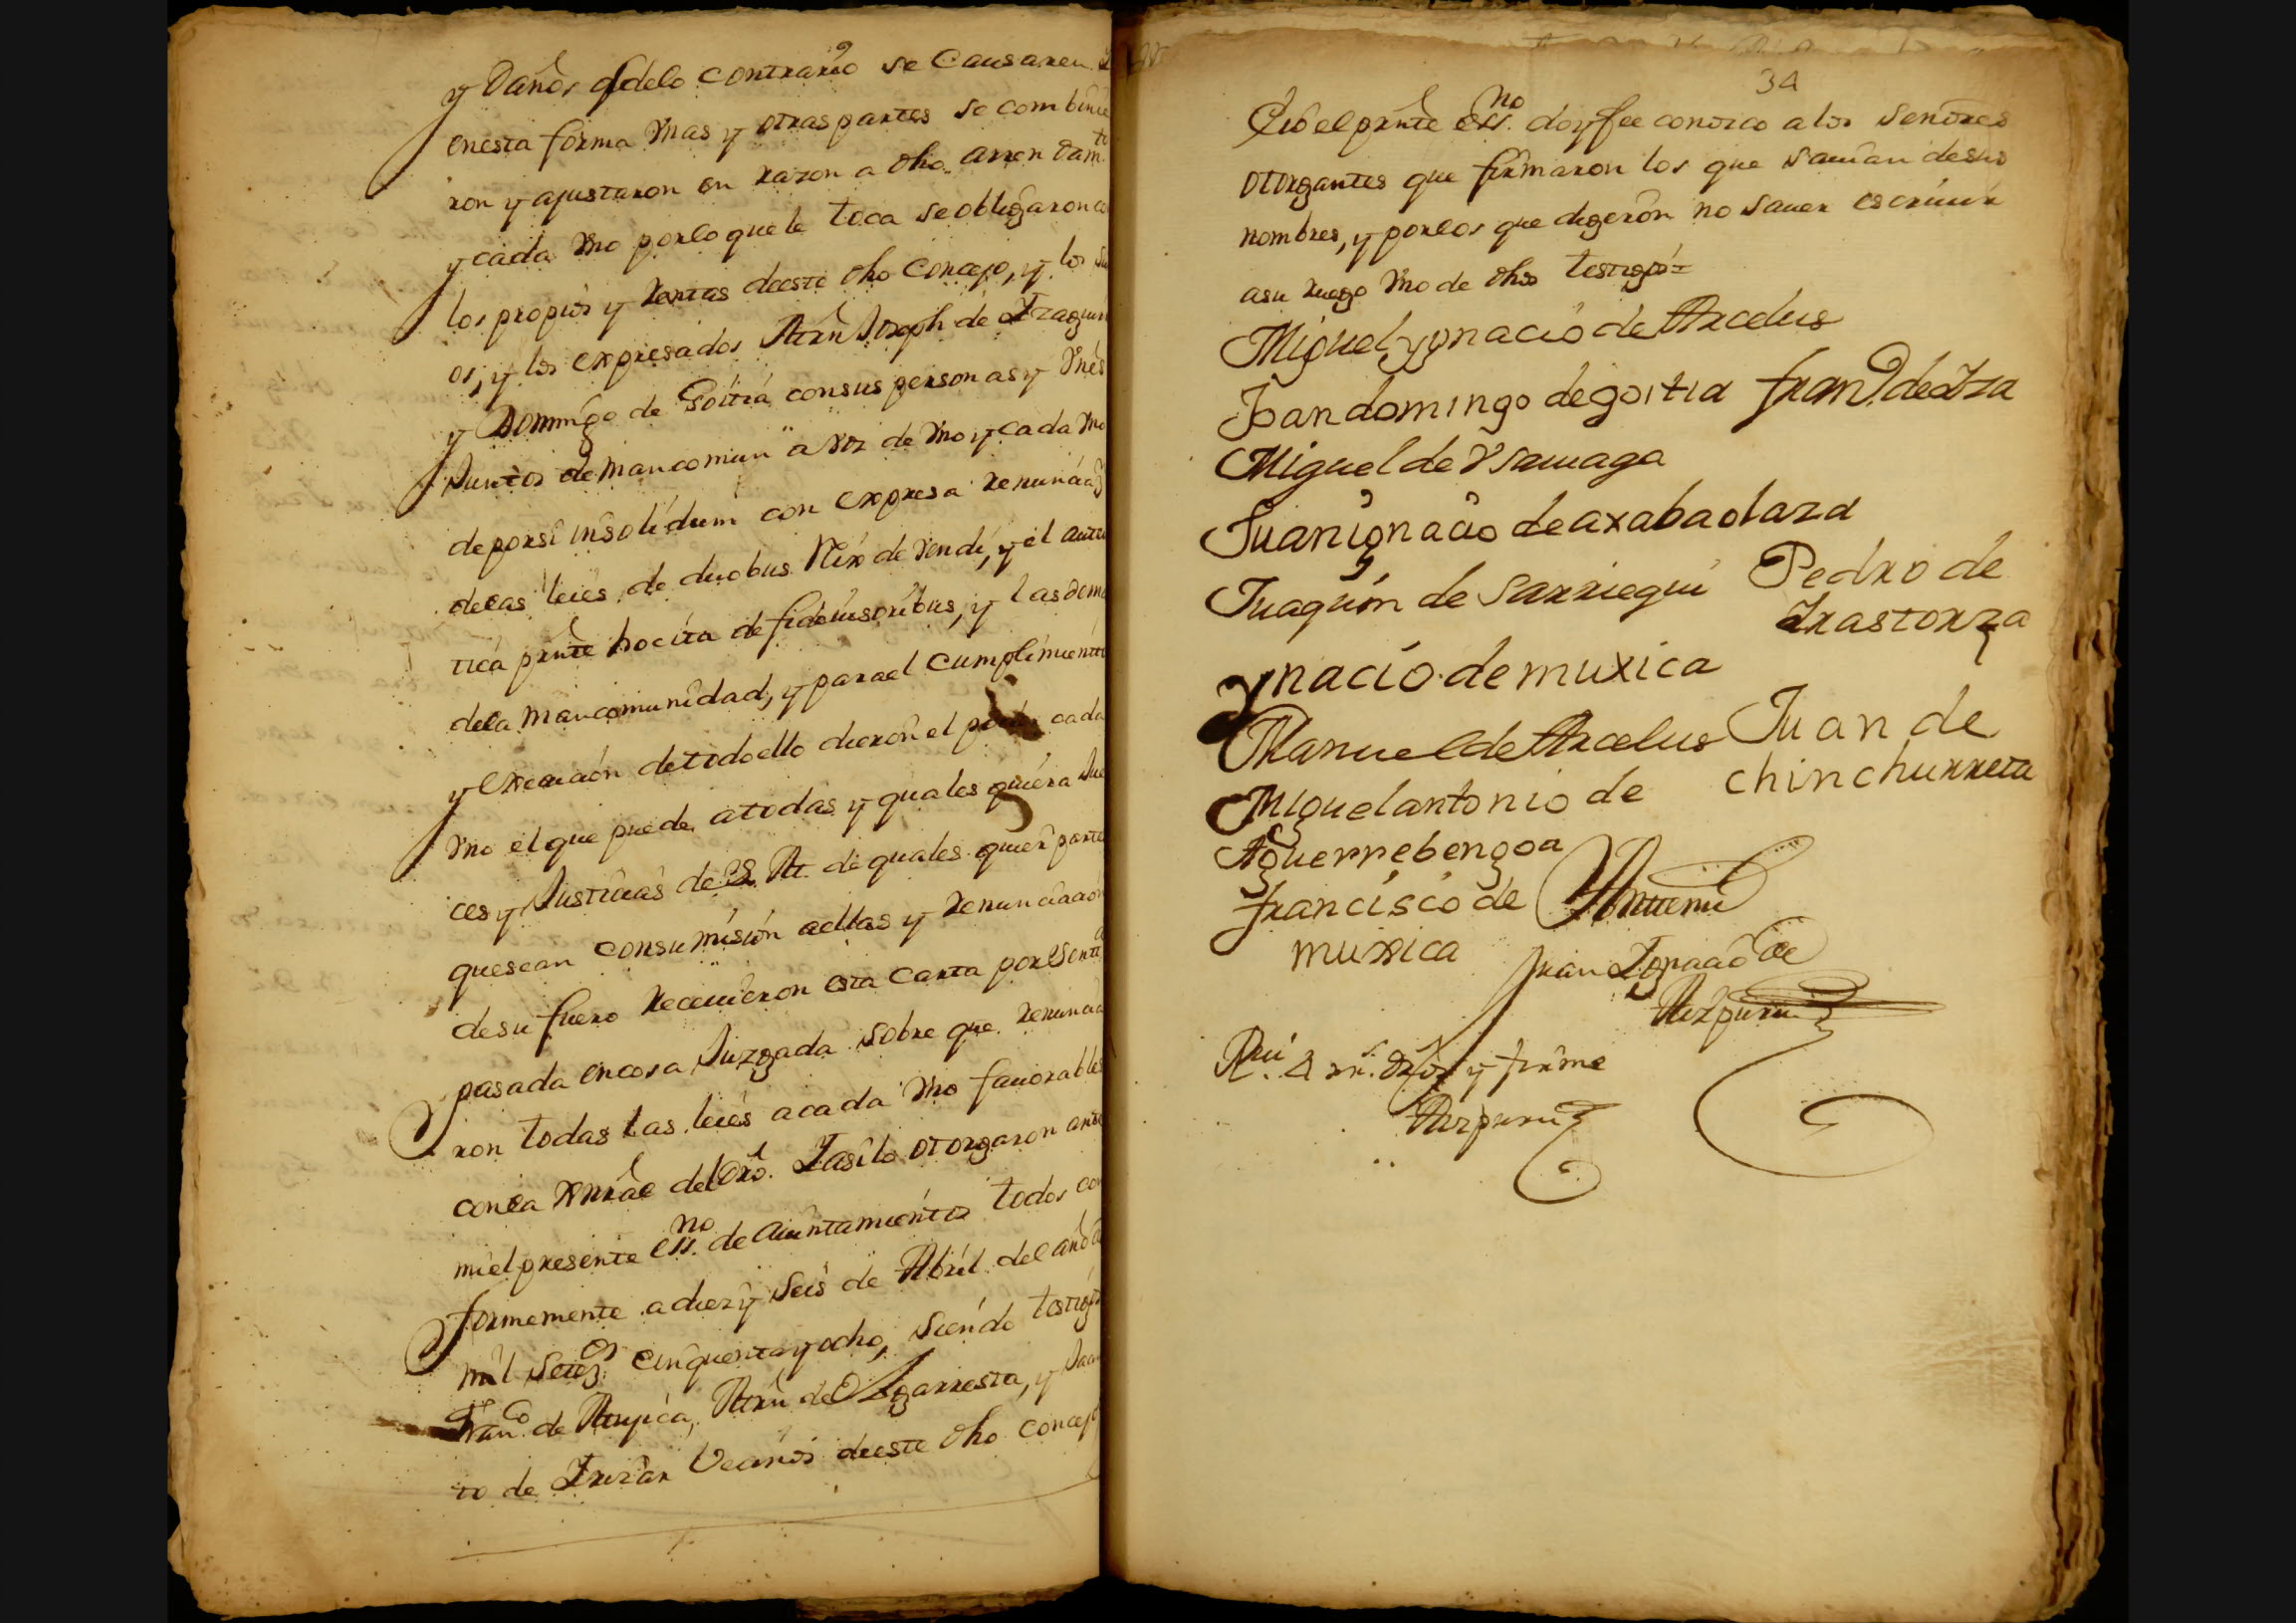 y Daños q̃ delo contrario se Causaren y
enesta forma Vnas y otras partes se combinie
ron y ajustaron en razon a dho. arrendam.to
y cada Vno por lo que le toca se obligaron co
los propios y Rentas deeste dho Concejo, y los su
os, y los expresados Mrñ Joseph de Yzaguir
y Domingo de Goitia consus personas y Vnes
Juntos de mancomun a voz de Vno y cada Vno
de porsi insolidum con expresa renunciaz
delas leies de duobus Reix de vendi, y el auten
tica pnte hocita de fideiusoribus, y las dema
dela mancomunidad, y parael cumplimiento
y execucion detodoello dieron el poder cada
Vno el que puede atodas y quales quiera Jue
ces y Justicias de S. M. de quales quier parte
quesean consumision aellas y renunciacion
desu fuero Receuieron esta Carta por Senta
pasada encosa Juzgada sobre que renuncia
ron todas las leies acada Vno fauorables
conla Xnral del Dro. Y asilo otorgaron ante
mi el presente ess.no de Aiuntamiento todos con
formemente adiez y Seis de Abril del año de
mil Setez.os cinquenta y ocho, siendo testigos
Fran.co de Mugica, Mrñ de Olagarresta, y Jacin
to de Yruzar Vecinos deeste dho concejo
34
E io el prnte ess.no doy fee conozco a los Senores
otorgantes que firmaron los que sauian desus
nombres, y porlos que digeron no sauer escriuir
asu ruego Vno de dhos testigos=
Miguel ygnacio de Arcelus
Joan domingo de goitia fran.co de Yza
Miguel de Vsauiaga
Juan ignacio de axabaolaza
Juaquin de Sarriegui Pedro de
Yrastorza
ynacio de muxica
Manuel de Arcelus Juan de
Miguel antonio de chinchurreta
Aguerrebengoa
francisco de Antemi
muxica Juan Ygnacio de
Aizpuru
Rui 4 rr.s Dros y firme
Aizpuru